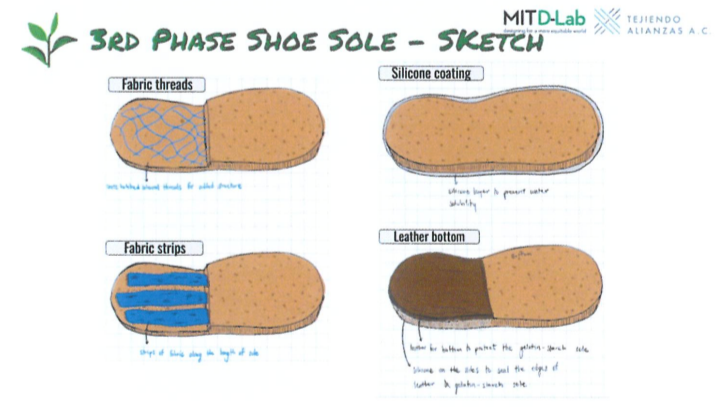 MIT D-Lab
designing for a more equitable world
TEJIENDO
ALIANZAS A.C.
3RD PHASE SHOE SOLE – SKETCH
Fabric threads
threads for added structure
Silicone coating
silicone layer to prevent water
solubility
Fabric strips
strips of fabric along the length of sole
Leather bottom
bottom
leather for bottom to protect the gelatin-starch sole
silicone on the sides to seal the edges of
leather & gelatin-starch sole